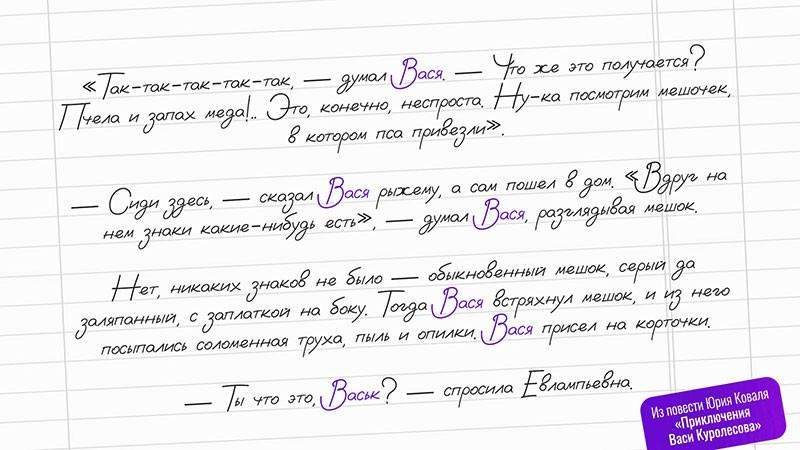 «Так-так-так-так-так, — думал Вася. — Что же это получается?
Пчела и запах меда!.. Это, конечно, неспроста. Ну-ка посмотрим мешочек,
в котором пса привезли».
— Сиди здесь, — сказал Вася рыжему, а сам пошел в дом. «Вдруг на
нем знаки какие-нибудь есть», — думал Вася, разглядывая мешок.
Нет, никаких знаков не было — обыкновенный мешок, серый да
заляпанный, с заплаткой на боку. Тогда Вася встряхнул мешок, и из него
посыпались соломенная труха, пыль и опилки. Вася присел на корточки.
— Ты что это, Васьк? — спросила Евлампьевна.
Из повести Юрия Коваля
«Приключения
Васи Куролесова»